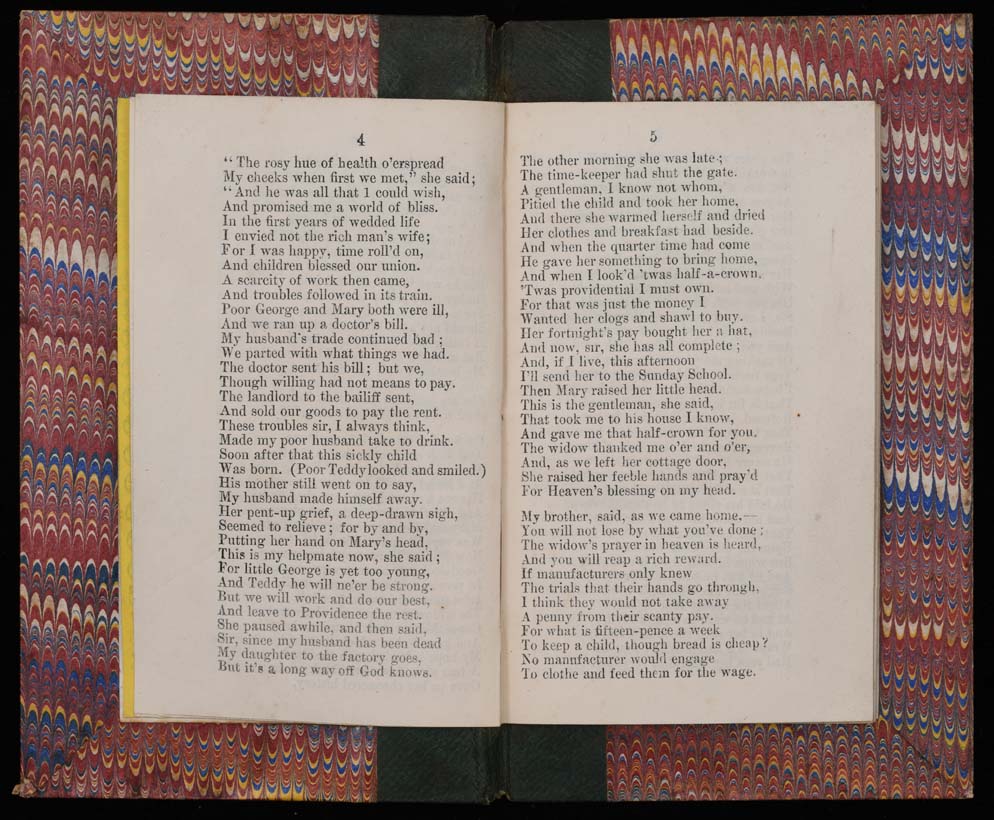 4
“ The rosy hue of health o’erspread
My cheeks when first we met,” she said;
“ And he was all that I could wish,
And promised me a world of bliss.
In the first years of wedded life
I envied not the rich man’s wife;
For I was happy, time roll’d on,
And children blessed our union.
A scarcity of work then came,
And troubles followed in its train.
Poor George and Mary both were ill,
And we ran up a doctor’s bill.
My husband’s trade continued bad ;
We parted with what things we had.
The doctor sent his bill ; but we,
Though willing had not means to pay.
The landlord to the bailiff sent,
And sold our goods to pay the rent.
These troubles sir, I always think,
Made my poor husband take to drink.
Soon after that this sickly child
Was born. (Poor Teddy looked and smiled.)
His mother still went on to say,
My husband made himself away.
Her pent-up grief, a deep-drawn sigh,
Seemed to relieve ; for by and by,
Putting her hand on Mary’s head,
This is my helpmate now, she said ;
For little George is yet too young,
And Teddy he will ne’er be strong.
But we will work and do our best,
And leave to Providence the rest.
She paused awhile, and then said,
Sir, since my husband has been dead
My daughter to the factory goes,
But it’s a long way off God knows.
5
The other morning she was late ;
The time-keeper had shut the gate.
A gentleman, I know not whom,
Pitied the child and took her home,
And there she warmed herself and dried
Her clothes and breakfast had beside.
And when the quarter time had come
He gave her something to bring home,
And when I look’d ’twas half-a-crown.
’Twas providential I must own.
For that was just the money I
Wanted her clogs and shawl to buy.
Her fortnight’s pay bought her a hat,
And now, sir, she has all complete ;
And, if I live, this afternoon
I’ll send her to the Sunday School.
Then Mary raised her little head.
This is the gentleman, she said,
That took me to his house I know,
And gave me that half-crown for you.
The widow thanked me o’er and o’er,
And, as we left her cottage door,
She raised her feeble hands and pray’d
For Heaven’s blessing on my head.
My brother, said, as we came home.—
You will not lose by what you’ve done ;
The widow’s prayer in heaven is heard,
And you will reap a rich reward.
If manufacturers only knew
The trials that their hands go through,
I think they would not take away
A penny from their scanty pay.
For what is fifteen-pence a week
To keep a child, though bread is cheap ?
No manufacturer would engage
To clothe and feed them for the wage.